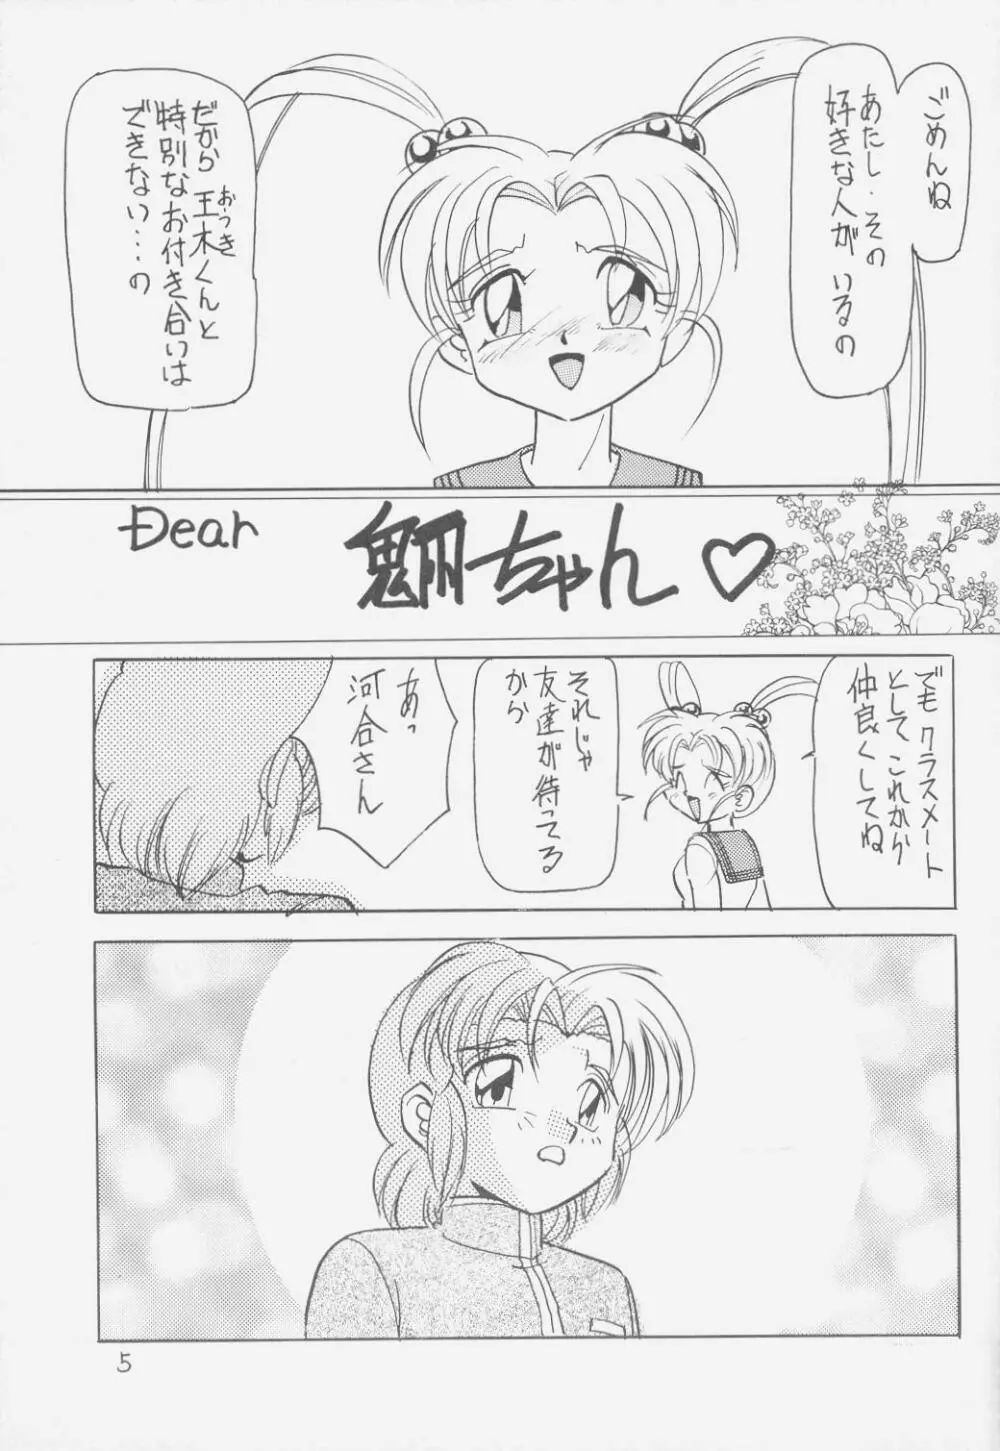 ごめんね
あたし・その
好きな人がいるの
だから王木くんと
おうき
特別なお付き合いは
できない…の
Dear
魍ちゃん♡
でもクラスメート
としてこれから
仲良くしてね
それじゃ
友達が待ってる
から
あっ
河合さん
5